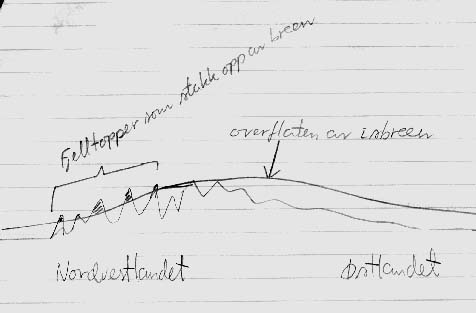 Fjelltopper som stakk opp av breen
overflaten av isbreen
Nordvestlandet
Østlandet